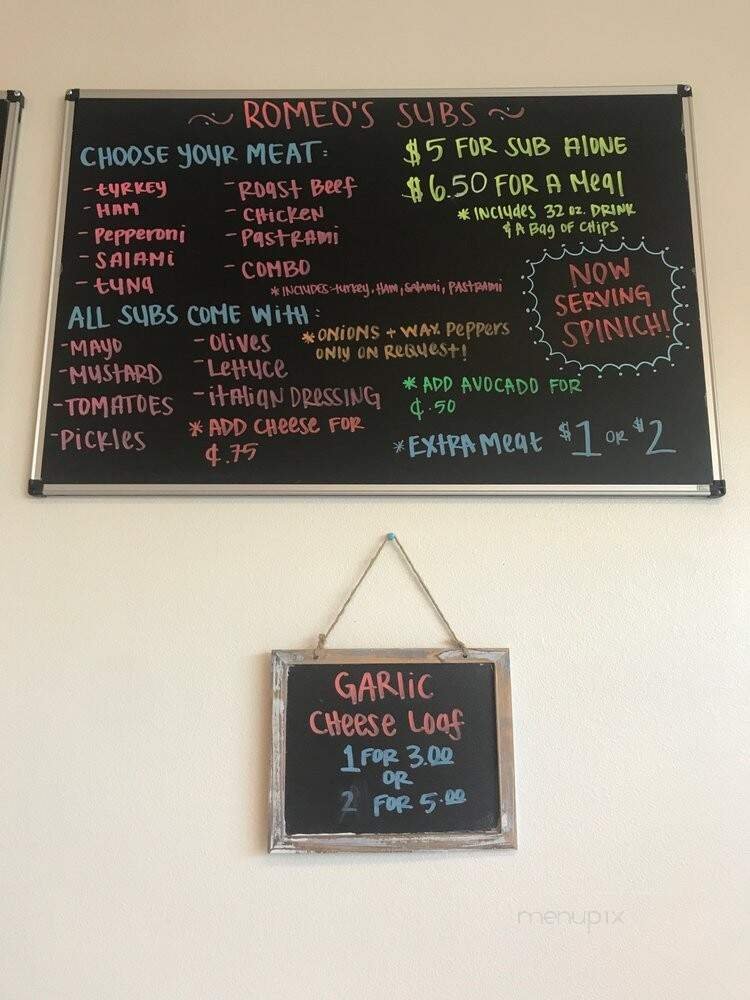 ~ ROMEO'S SUBS ~
CHOOSE YOUR MEAT:
- turkey
- HAM
- Pepperoni
- SALAMi
- tuna
- Roast Beef
- CHicKen
- PastRAMi
- COMBO
* INCLUDES-turkey, HAM, SALAMi, PASTRAMI
$5 FOR SUB ALONE
$6.50 FOR A MeAl
* INCludes 32 oz. DRINK
& A BAG OF CHIPS
NOW
SERVING
SPINICH!
ALL SUBS COME WITH:
- MAYO
- MUSTARD
- TOMATOES
- Pickles
- Olives
- Lettuce
- itAliAN DRESSING
* ADD CHeese FOR
¢.75
* ONIONS + WAX Peppers
ONLY ON ReQuest!
* ADD AVOCADO FOR
¢.50
* EXTRA Meat $1 OR $2
GARLic
CHeese Loaf
1 FOR 3.00
OR
2 FOR 5.00
menupix